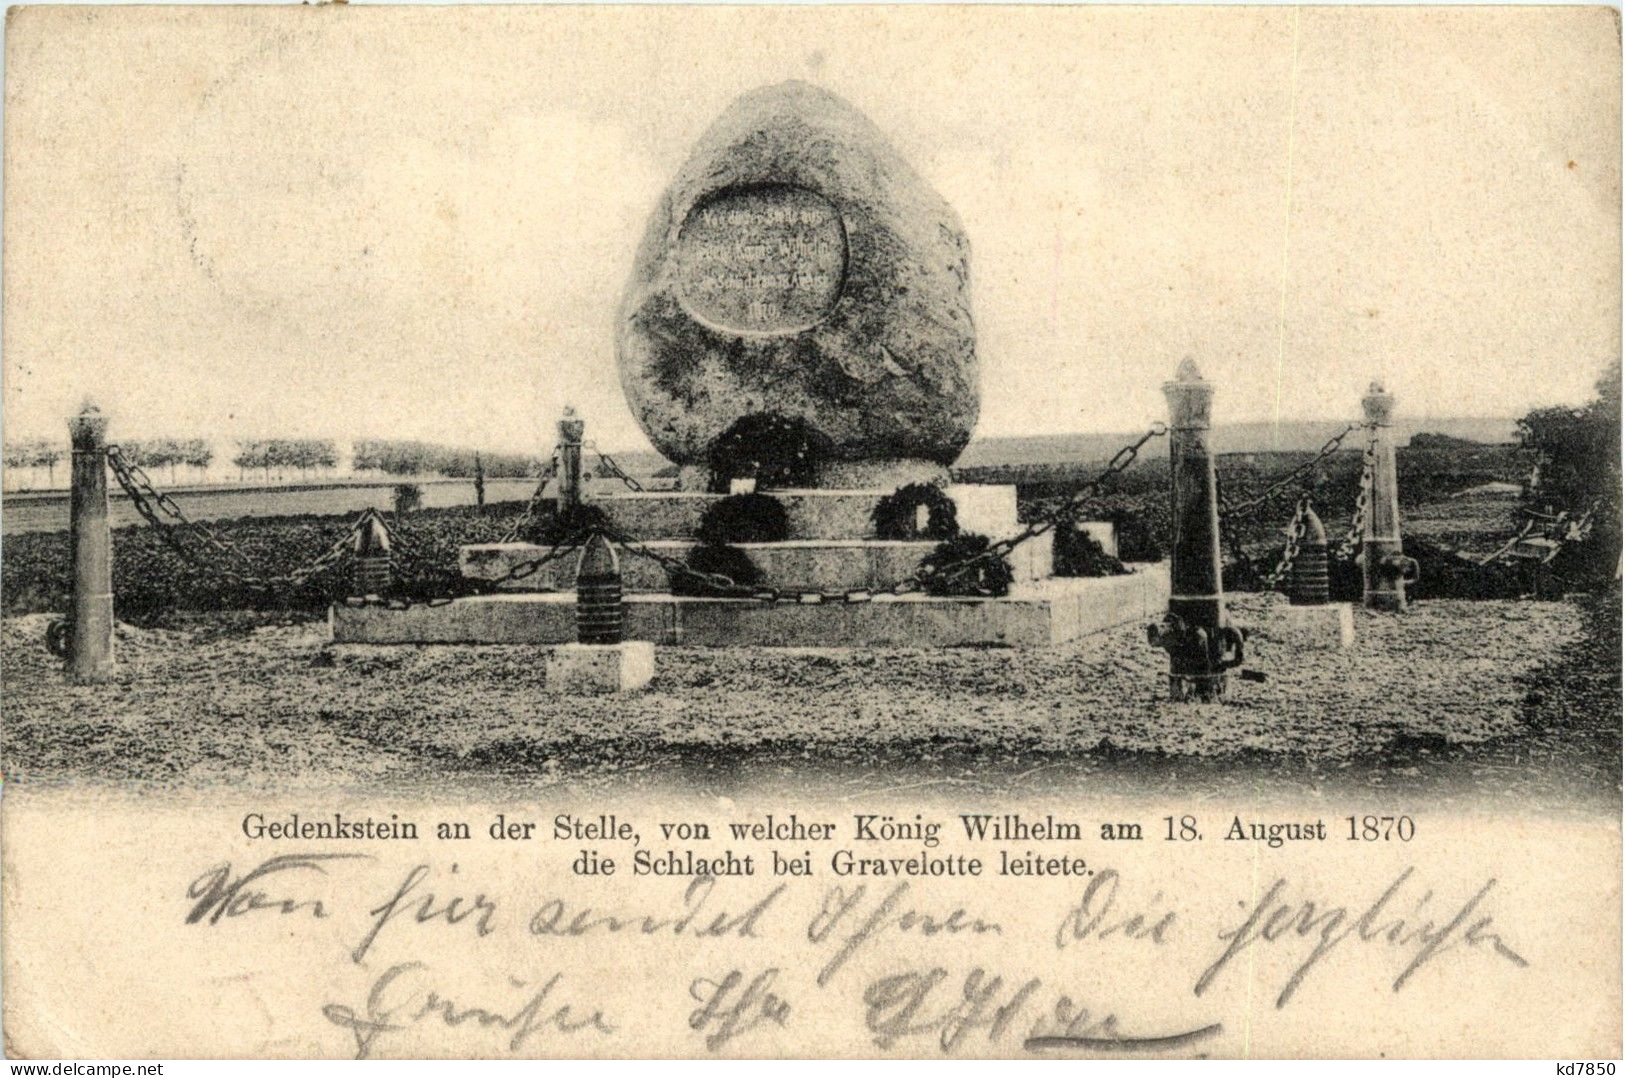 Von dieser Stelle aus
König Wilhelm
1870
Gedenkstein an der Stelle, von welcher König Wilhelm am 18. August 1870
die Schlacht bei Gravelotte leitete.
Von hier sendet Ihnen Die herzlichsten
Grüße Ihr
kd7850